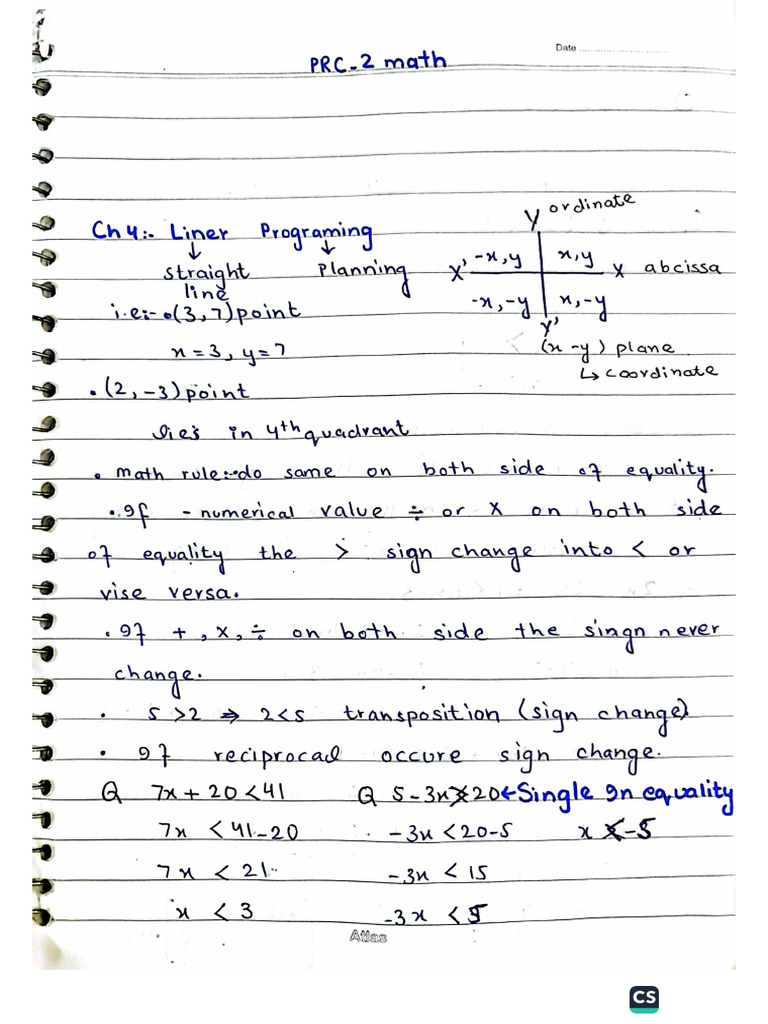 Date
PRC-2 math
Ch 4:- Liner Programing
↓ ↓
straight Planning
line
Y ordinate
-x, y x, y
X' X abcissa
-x, -y x, -y
Y'
(x-y) plane
↳ coordinate
i.e:- •(3,7) point
x = 3, y = 7
• (2, -3) point
lies in 4th quadrant
• math rule:- do same on both side of equality.
• If - numerical value ÷ or × on both side
of equality the > sign change into < or
vise versa.
• If +, ×, ÷ on both side the singn never
change.
• 5 > 2 ⇒ 2 < 5 transposition (sign change)
• If reciprocal occure sign change.
Q 7x + 20 < 41 Q 5 - 3x 20 ← Single In equality
7x < 41 - 20 - 3x < 20 - 5 x -5
7x < 21 - 3x < 15
x < 3 -3x < 5
Atlas
CS